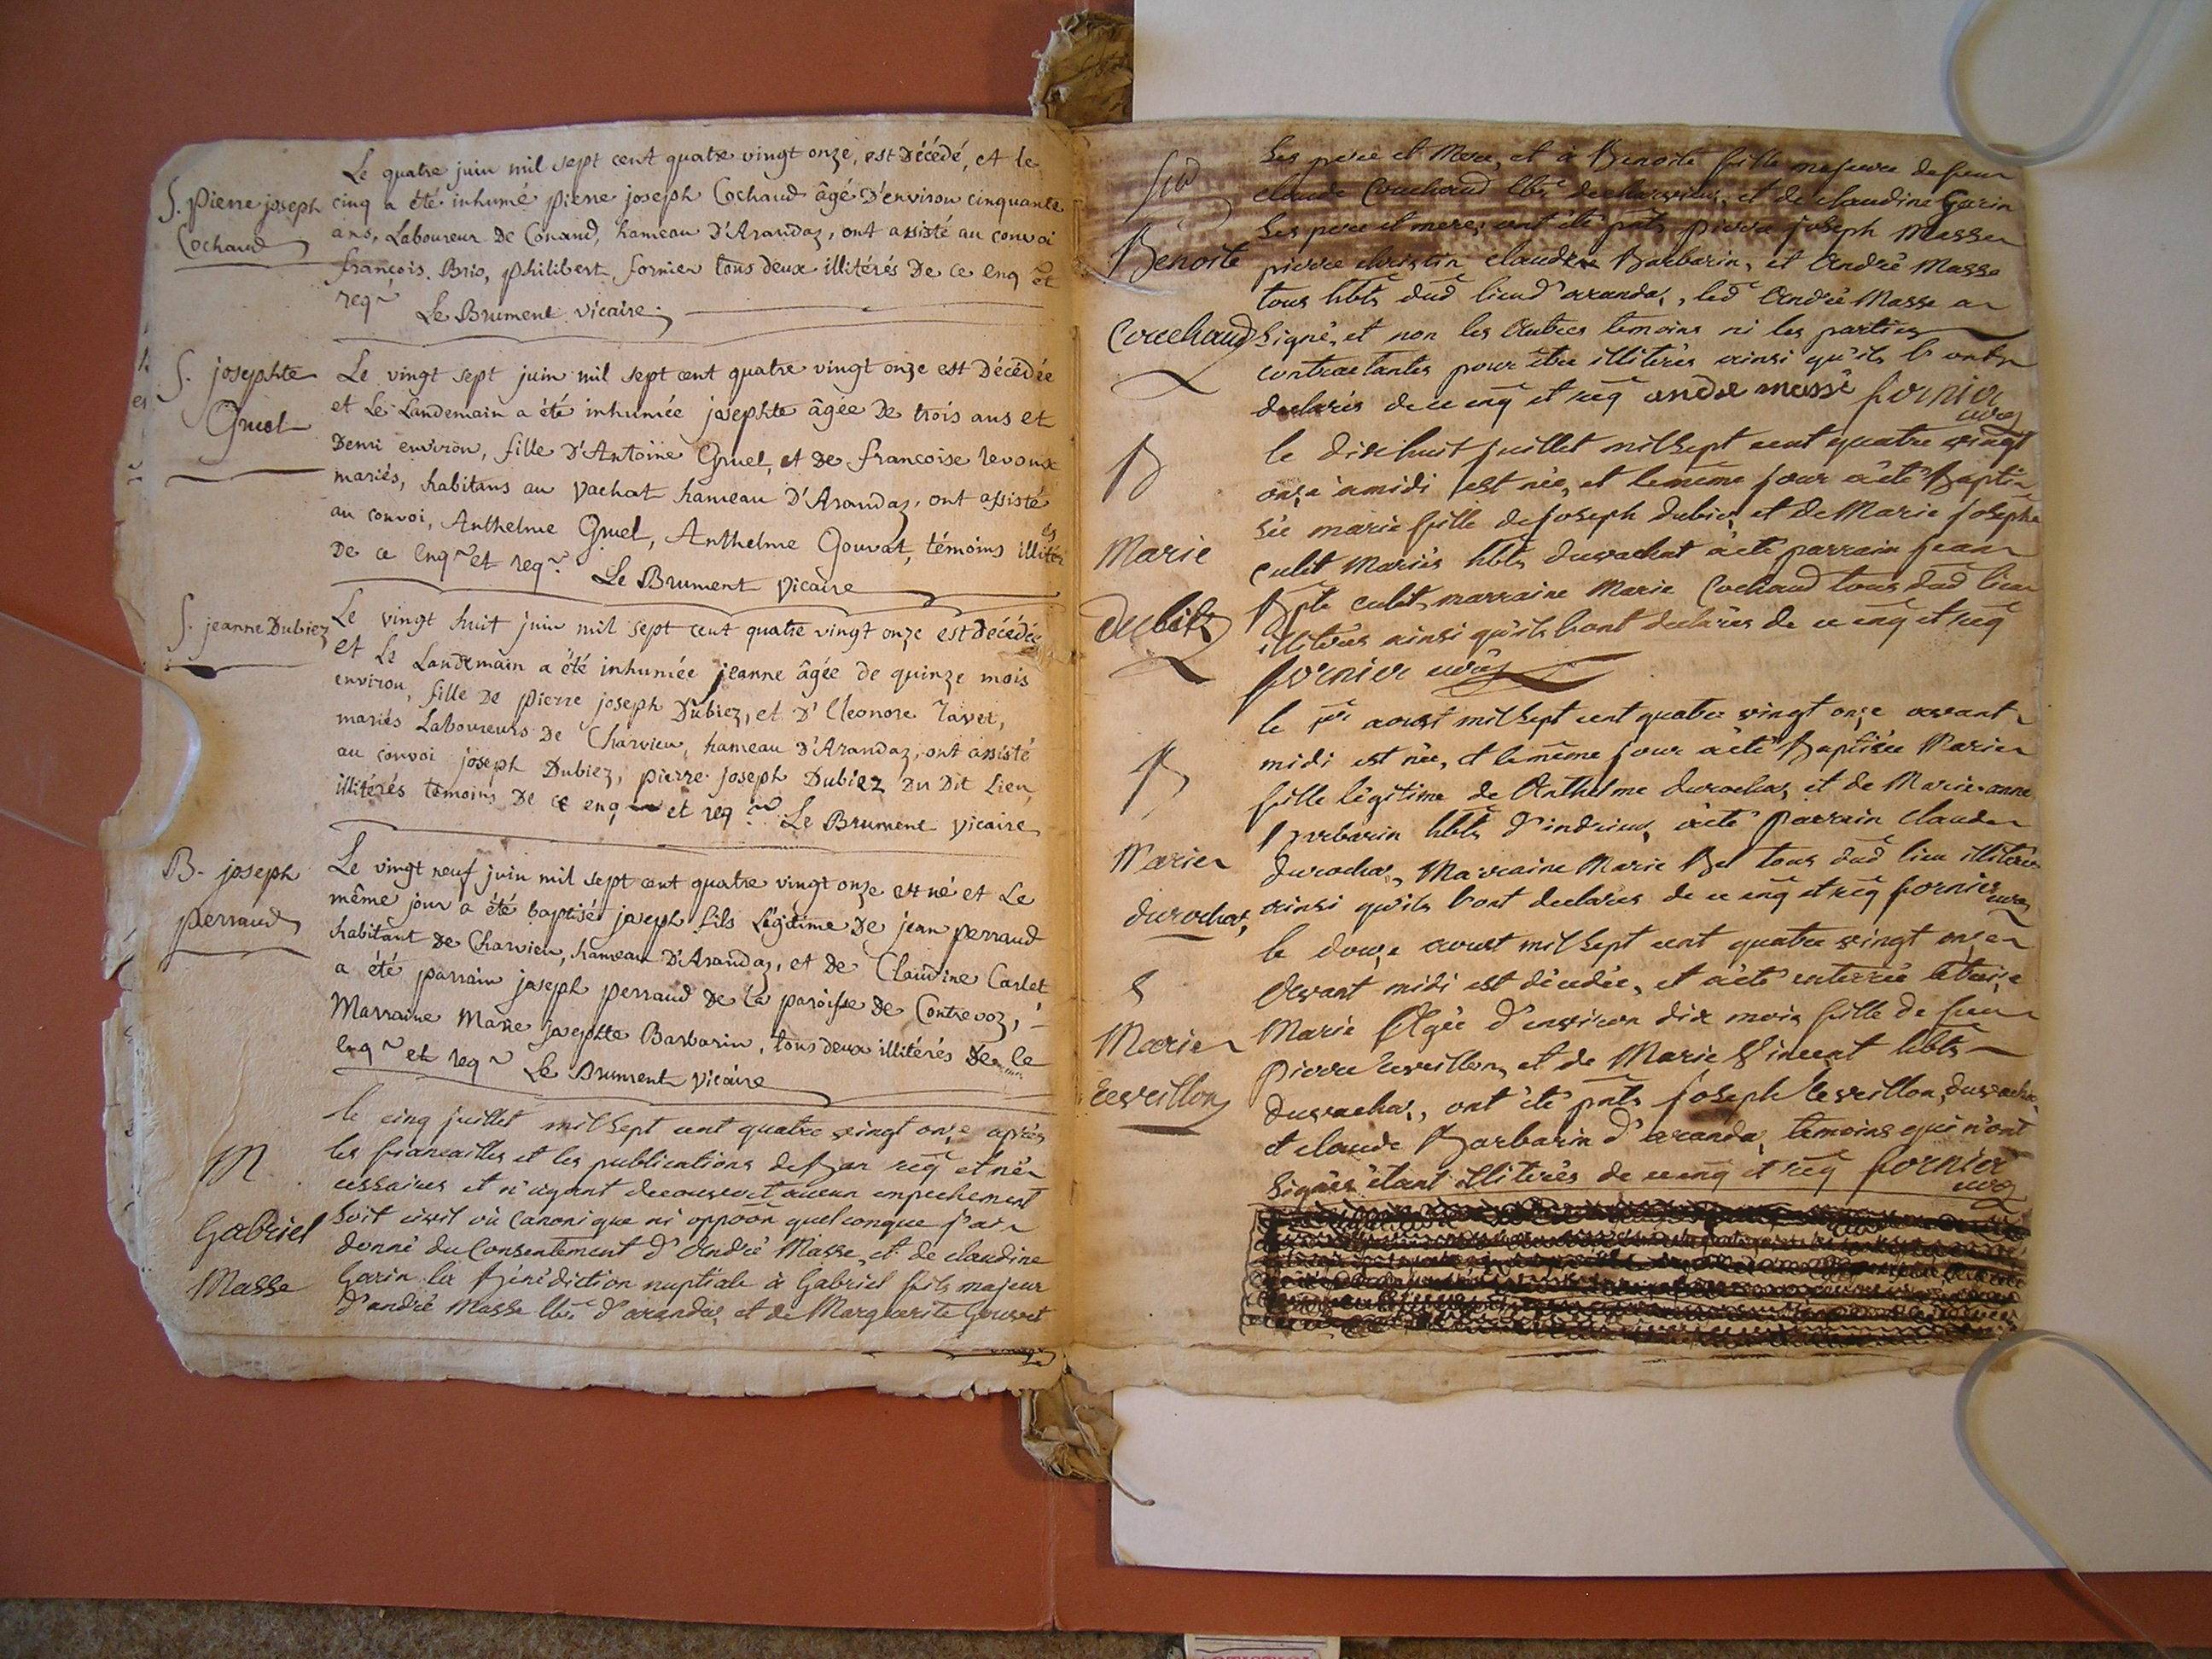 S. Pierre joseph
Cochaud
Le quatre juin mil sept cent quatre vingt onze, est Décédé, et le
cinq a été inhumé pierre joseph Cochaud âgé D'environ cinquante
ans, Laboureur De Conand, hameau D'Arandaz, ont assisté au convoi
françois Brio, philibert fornier tous deux illitérés De ce enq et
req Le Brument vicaire
S. josephte
Gruel
Le vingt sept juin mil sept cent quatre vingt onze est Décédée
et Le Landemain a été inhumée josephte âgée De trois ans et
Demi environ, fille D'Antoine Gruel, et De francoise revoux
mariés, habitans au vachat hameau D'Arandaz, ont assisté
au convoi, Anthelme Gruel, Anthelme Gouvat, témoins
De ce enq et req Le Brument vicaire
S. jeanne Dubiez
Le vingt huit juin mil sept cent quatre vingt onze est Décédée
et Le Landemain a été inhumée jeanne âgée de quinze mois
environ, fille De pierre joseph Dubiez, et D'Eleonore Tavet,
mariés Laboureurs De Charvieu, hameau D'Arandaz, ont assisté
au convoi joseph Dubiez, pierre joseph Dubiez Du Dit Lieu,
illitérés témoins De ce enq et req Le Brument vicaire
B. joseph
perraud
Le vingt neuf juin mil sept cent quatre vingt onze est né et Le
même jour a été baptisé joseph fils Légitime De jean perraud
habitant de Charvieu, hameau D'Arandaz, et de Claudine Carlet,
a été parrain joseph perraud De la paroisse De Contrevoz,
Marraine Marie josephte Barbarin, tous deux illitérés De ce
enq et req Le Brument vicaire
M
Gabriel
Masse
le cinq juillet mil sept cent quatre vingt onze après
les fiancailles et les publications de ban req et né
cessaires et n'ayant decouvert aucun empechement
soit civil où canonique ni oppoõn quelconque j'ai
donné du Consentement d'André Masse, et de claudine
Garin la Bénédiction nuptiale à Gabriel fils majeur
d'andré Masse d'arandaz et de Marguerite Gouvet
Benoite
Couchaud
ses pere et Mere, et à Benoite fille majeure de feu
claude Couchaud de charvieux, et de claudine Garin
ses pere et mere; ont été pnts pierre joseph Masse
pierre christin claude Barbarin, et André Masse
tous hbts dud lieu d'arandaz, led André Masse a
signé, et non les Autres temoins ni les parties
contractantes pour être illitérés ainsi qu'ils l'ont
declarés de ce enq et req andre massé fornier
curé
B
Marie
dubiez
le dix huit juillet mil sept cent quatre vingt
onze à midi est née, et le même jour a été Bapti
sée marie fille de joseph dubiez et de Marie josephe
culet Mariés hbts du vachat a été parrain jean
Bpte culet, marraine Marie Cochaud tous dud lieu
illitérés ainsi qu'ils l'ont declarés de ce enq et req
fornier curé
B
Marie
durochat
le 1er aoust mil sept cent quatre vingt onze avant
midi est née, et le même jour a été Baptisée Marie
fille légitime de Anthelme durochat, et de Marie anne
Barbarin hbts d'indrieux, a été parrain claude
durochat, Marraine Marie Bel tous dud lieu illitérés
ainsi qu'ils l'ont declarés de ce enq et req fornier curé
S
Marie
Reveillon
le douze aoust mil sept cent quatre vingt onze
Avant midi est décedée, et a été enterrée le treize
Marie Agée d'environ dix mois fille de feu
Pierre reveillon, et de Marie Vincent hbts
du vachat, ont été pnts joseph reveillon, du vachat
et claude Barbarin d'arandaz temoins qui n'ont
signés étant illitérés de ce enq et req fornier
curé